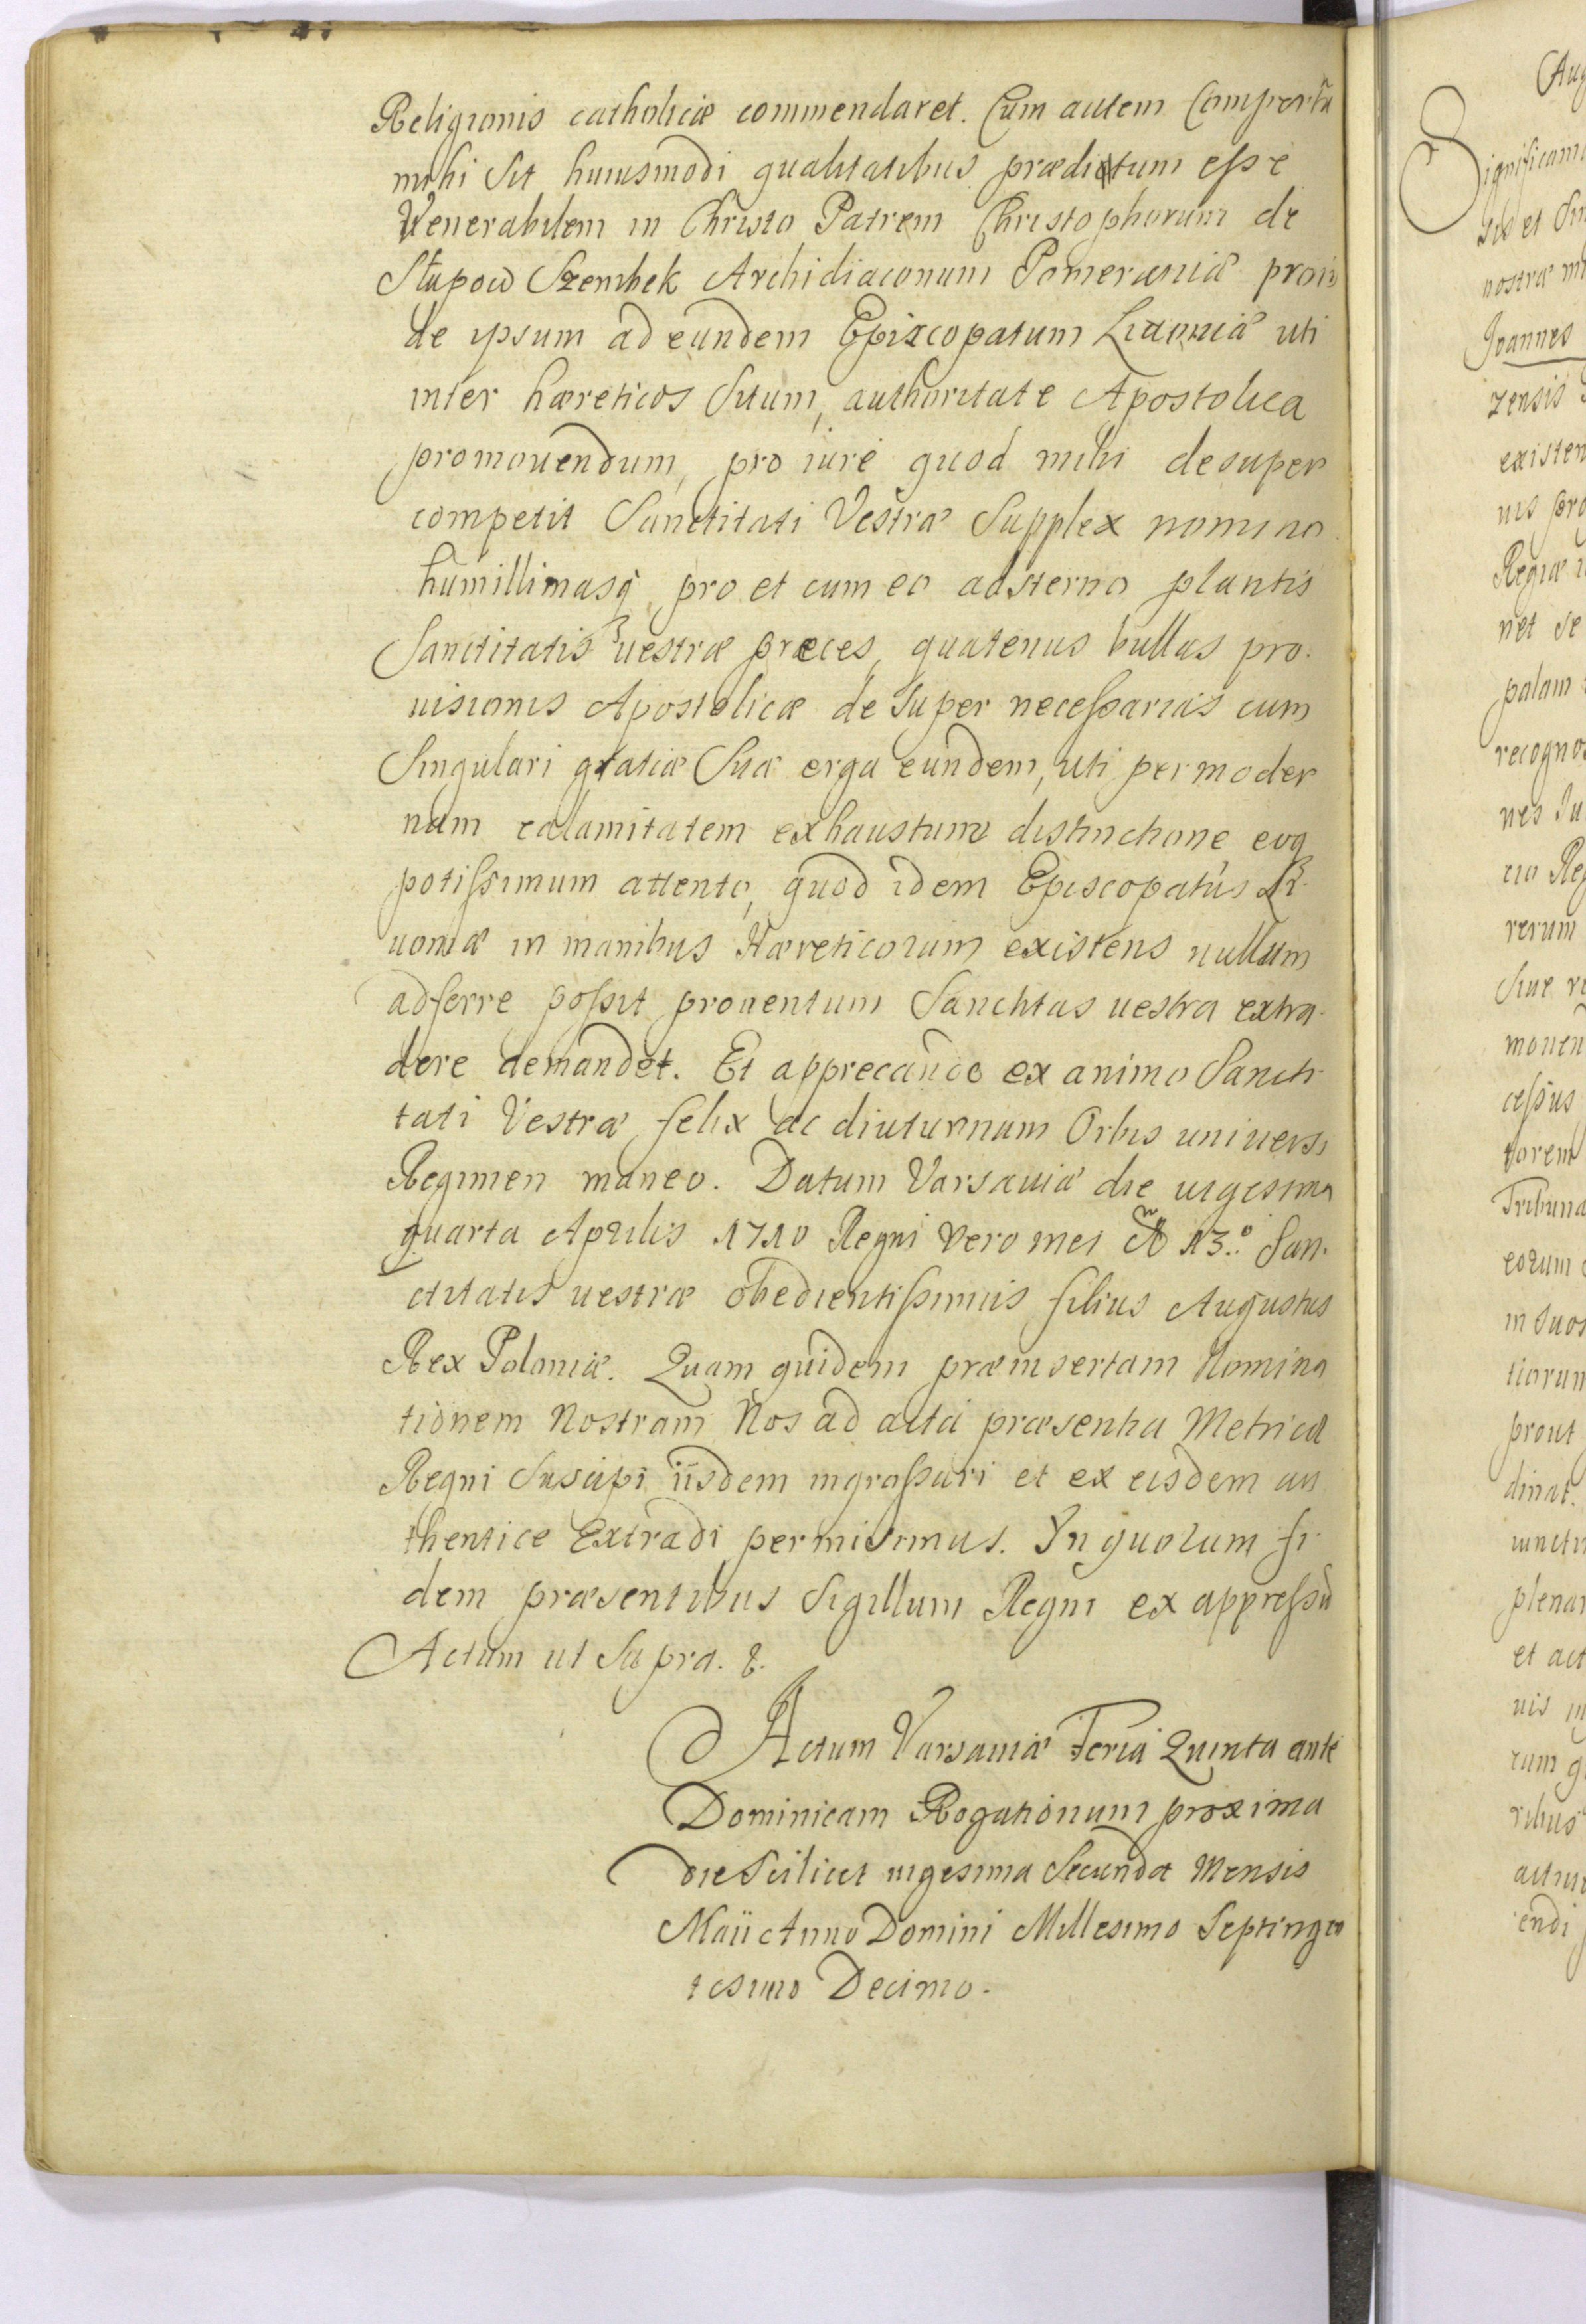 Religionis catholicæ commendaret. Cum autem Compertũ
mihi sit huiusmodi qualitatibus prædictum eſse
Venerabilem in Christo Patrem Christophorum de
Słupow Szembek Archidiaconum Pomeraniæ proin
de ipsum ad eundem Episcopatum Livoniæ uti
inter hæreticos situm, authoritate Apostolica
promouendum, pro iure quod mihi desuper
competit Sanctitati Vestræ Supplex nomino
humillimasq́ pro et cum eo adsterno plantis
Sanctitatis uestræ præces, quatenus bullas pro.
uisionis Apostolicæ de super neceſsarias cum
Singulari gratiæ Suæ erga eundem, uti per moder
nam calamitatem exhaustum distinctione eoq
potiſsimum attento, quod idem Episcopatus Li.
uoniæ in manibus Hæreticorum existens nullum
adferre poſsit prouentum Sanctitas uestra extra.
dere demandet. Et apprecando ex animo Sancti
tati Vestræ felix ac diuturnum Orbis uniuersi
Regimen maneo. Datum Varsauiæ die uigesima
quarta Aprilis 1710 Regni vero mei Aº 13.º San.
ctitatis uestræ obedientiſsimus filius Augustus
Rex Poloniæ. Quam quidem præinsertam Nomina
tionem Nostram Nos ad acta præsentia Metricæ
Regni Suscipi iisdem ingroſsari et ex eisdem au
thentice Extradi permisimus. In quorum fi
dem præsentibus Sigillum Regni ex appreſsũ
Actum ut Supra. &.
Actum Varsauiæ Feria Quinta ante
Dominicam Rogationum proxima
die Scilicet uigesima Secunda Mensis
Maii Anno Domini Millesimo Septingen
tesimo Decimo.
Joannes
zensis
net se
palam
rerum
prout
dinat.
et act
endi